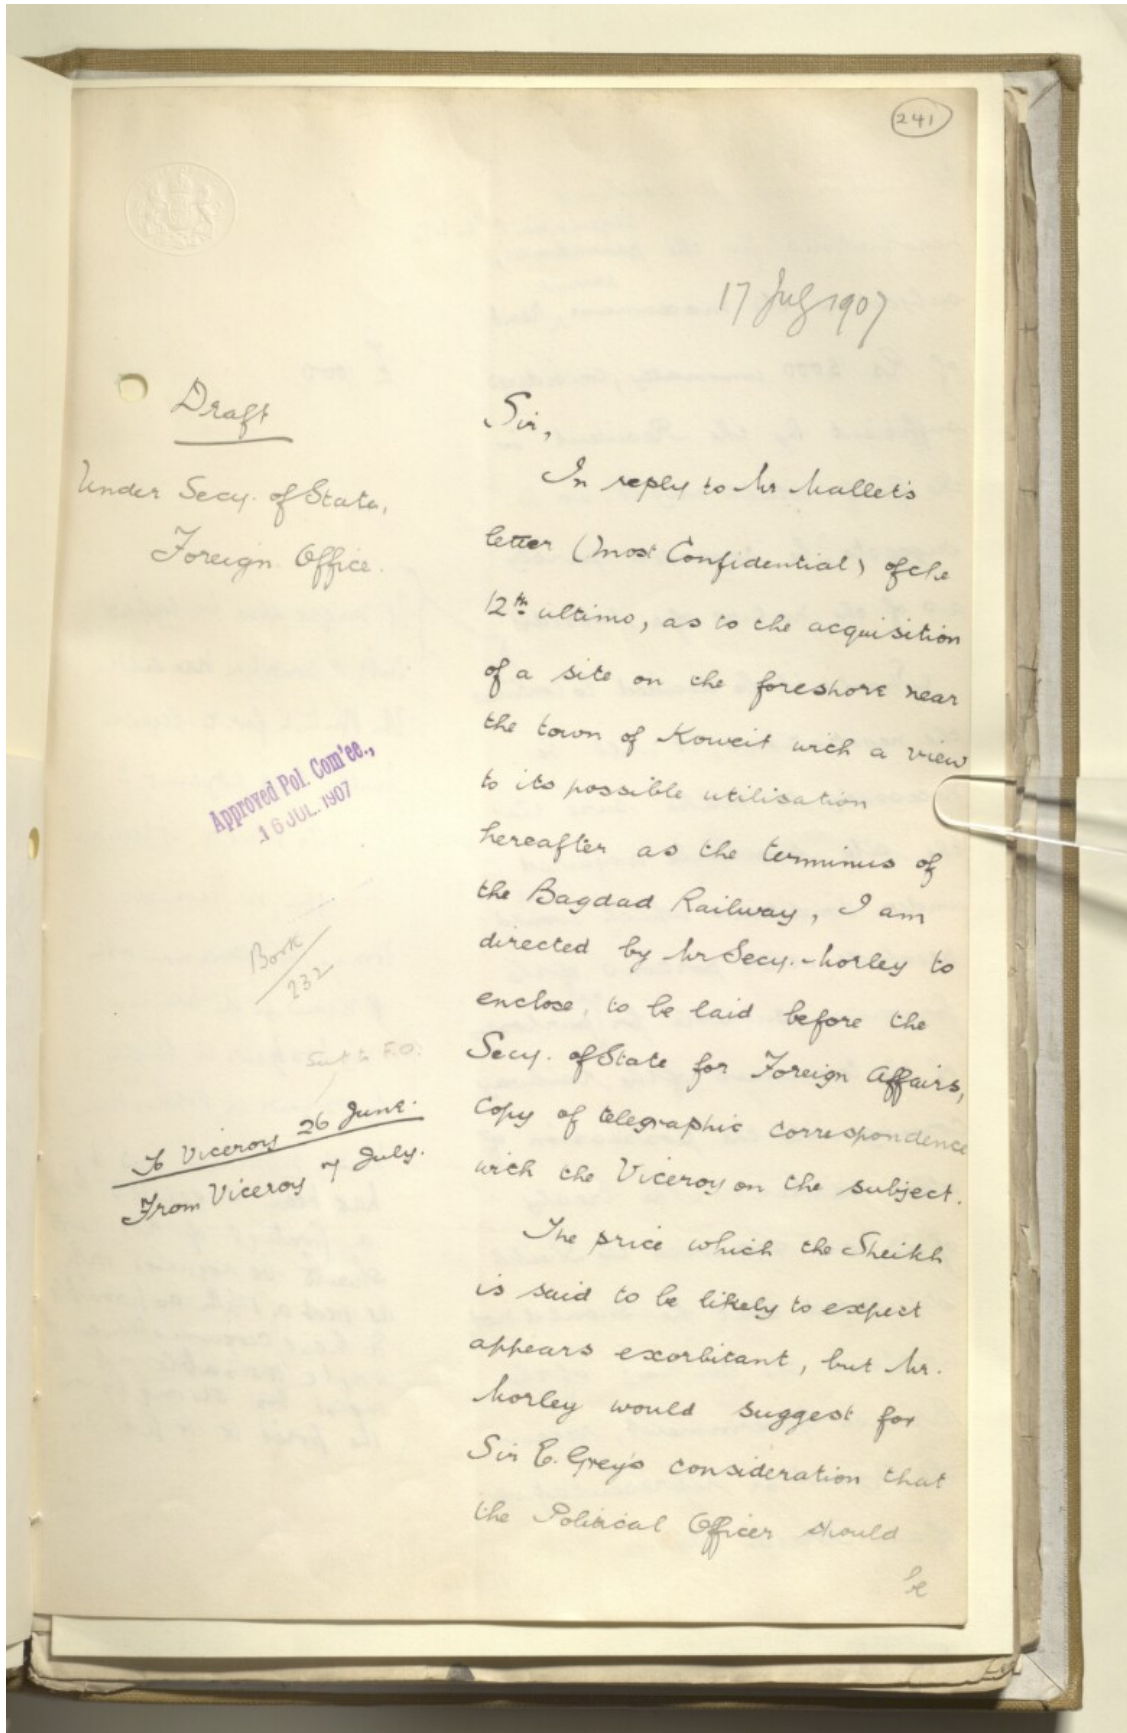 241
17 July 1907
Draft
Under Secy. of State,
Foreign Office.
Approved Pol. Com'ee.,
16 JUL. 1907
Book
232
Sent to F.O.
To Viceroy 26 June.
From Viceroy 7 July.
Sir,
In reply to Mr Mallet's
letter (Most Confidential) of the
12th ultimo, as to the acquisition
of a site on the foreshore near
the town of Koweit with a view
to its possible utilisation
hereafter as the terminus of
the Bagdad Railway, I am
directed by Mr Secy. Morley to
enclose, to be laid before the
Secy. of State for Foreign Affairs,
copy of telegraphic correspondence
with the Viceroy on the subject.
The price which the Sheikh
is said to be likely to expect
appears exorbitant, but Mr.
Morley would suggest for
Sir E. Grey's consideration that
the Political Officer should
be